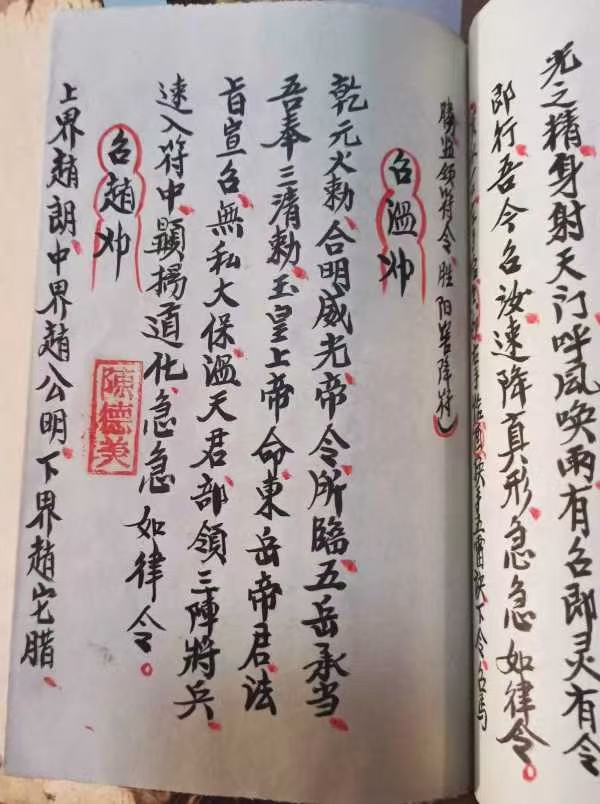 光之精身射天门呼風唤雨有召即灵有令
即行吾今召汝速降真形急急如律令
召溫帅
乾元火勅合明威光帝令所臨五岳承当
吾奉三清勅玉皇上帝命東岳帝君法
旨宣召無私大保溫天君部領三陣將兵
速入符中顯揚道化急急如律令
召趙帅
陳德美
上界趙朗中界趙公明下界趙宅腊